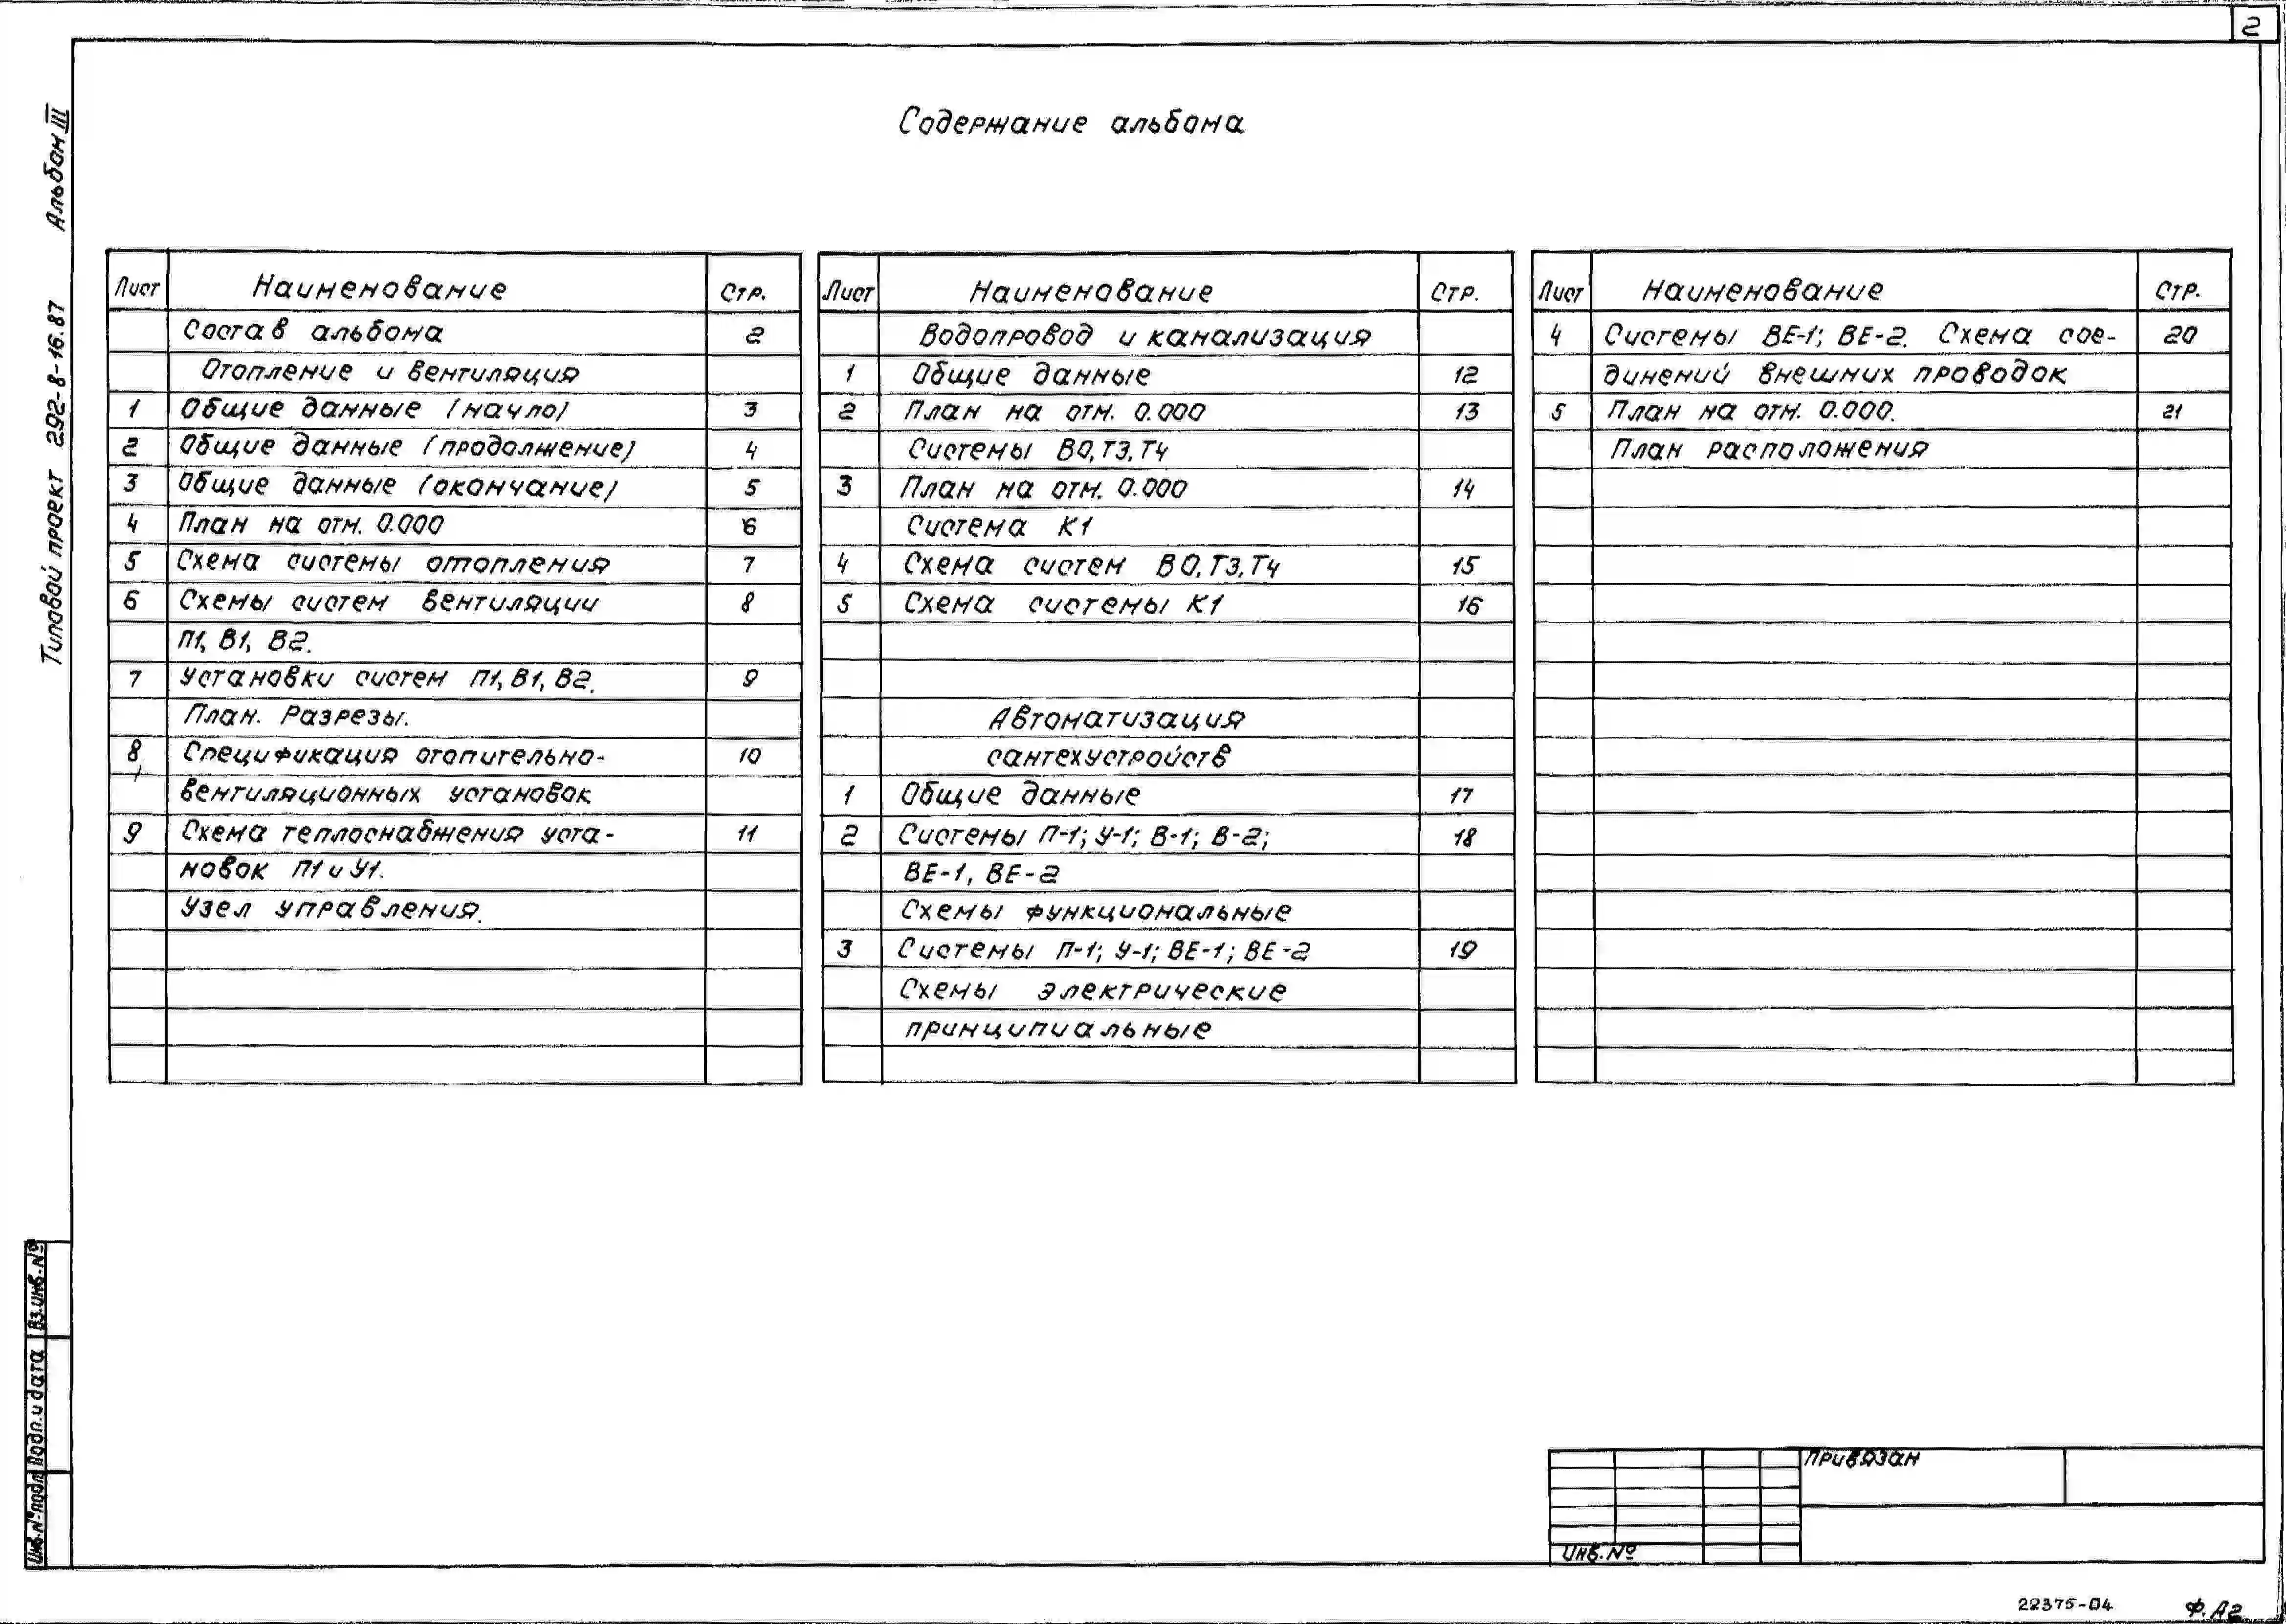 2
Содержание альбома
Типовой проект 292-8-16.87 Альбом III
Лист Наименование Стр.
Состав альбома 2
Отопление и вентиляция
1 Общие данные (начло) 3
2 Общие данные (продолжение) 4
3 Общие данные (окончание) 5
4 План на отм. 0.000 6
5 Схема системы отопления 7
6 Схемы систем вентиляции 8
П1, В1, В2.
7 Установки систем П1, В1, В2. 9
План. Разрезы.
8 Спецификация отопительно- 10
вентиляционных установок
9 Схема теплоснабжения уста- 11
новок П1 и У1.
Узел управления.
Лист Наименование Стр.
Водопровод и канализация
1 Общие данные 12
2 План на отм. 0.000 13
Системы В0, Т3, Т4
3 План на отм. 0.000 14
Система К1
4 Схема систем В0, Т3, Т4 15
5 Схема системы К1 16
Автоматизация
сантехустройств
1 Общие данные 17
2 Системы П-1; У-1; В-1; В-2; 18
ВЕ-1, ВЕ-2
Схемы функциональные
3 Системы П-1; У-1; ВЕ-1; ВЕ-2 19
Схемы электрические
принципиальные
Лист Наименование Стр.
4 Системы ВЕ-1; ВЕ-2. Схема сое- 20
динений внешних проводок
5 План на отм. 0.000. 21
План расположения
Инв.№ подл. Подп. и дата Вз.инв.№
Привязан
Инв.№
22375-04 Ф.А2